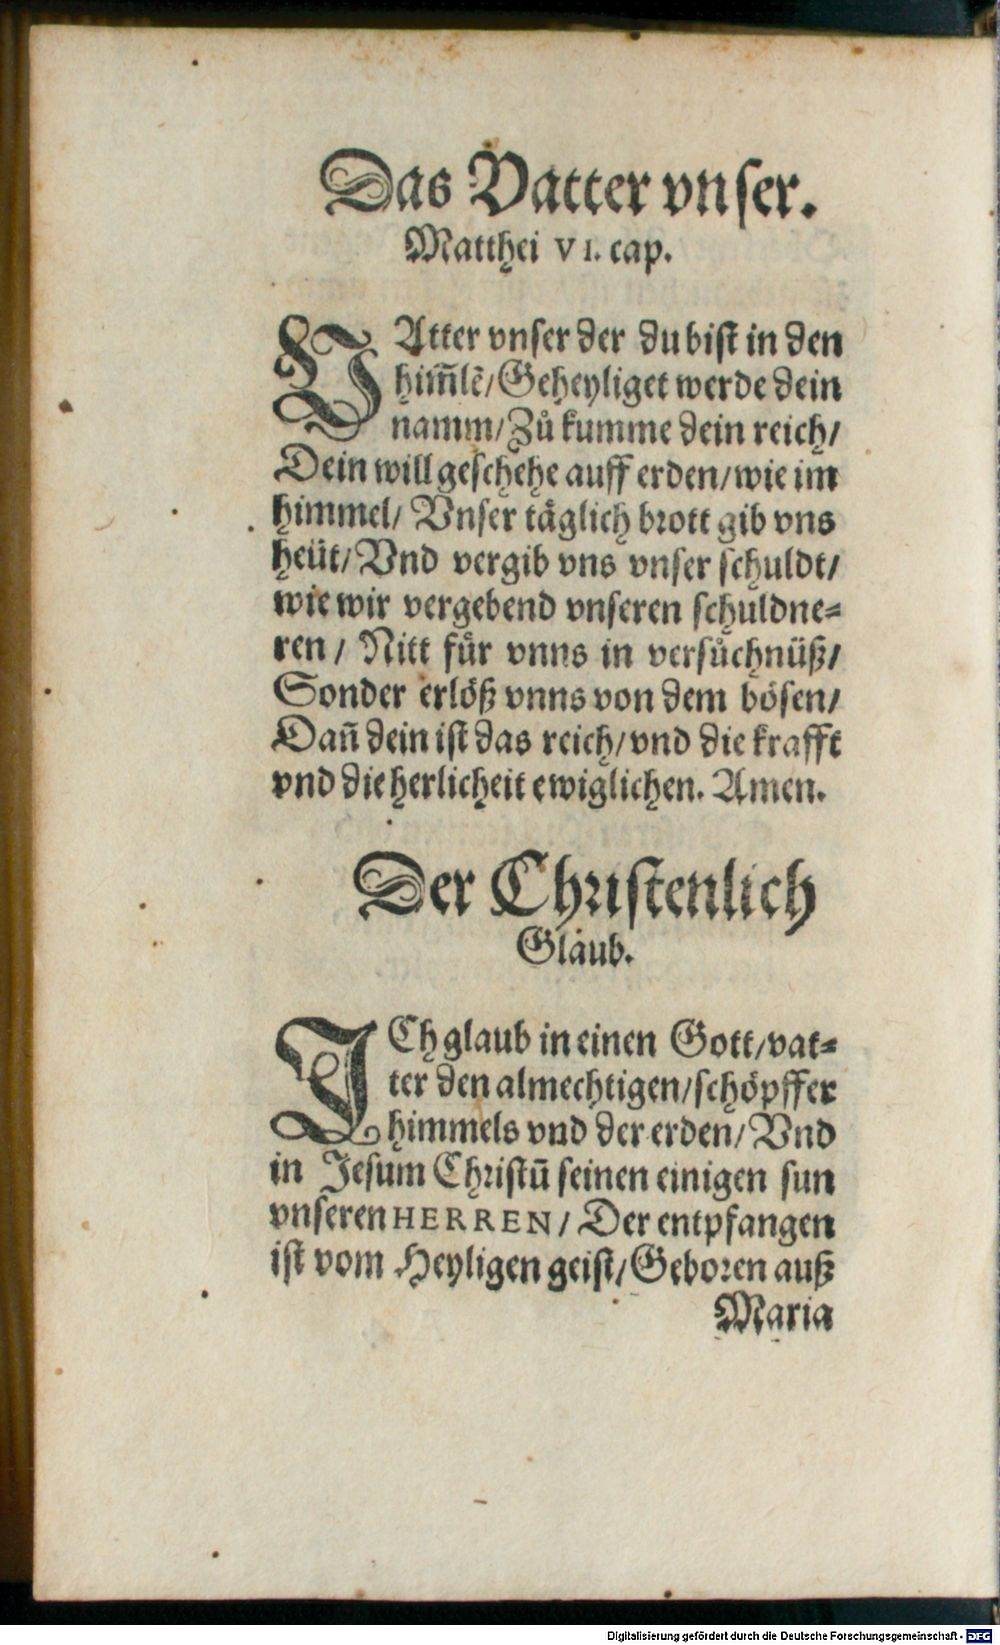 Das Vatter vnser.
Matthei VI. cap.
VAtter vnser der du bist in den
him̃lẽ/Geheyliget werde dein
namm/Zů kumme dein reich/
Dein will geschehe auff erden/wie im
himmel/ Vnser täglich brott gib vns
heüt/Vnd vergib vns vnser schuldt/
wie wir vergebend vnseren schuldne⸗
ren/ Nitt für vnns in versůchnüß/
Sonder erlöß vnns von dem bösen/
Dañ dein ist das reich/vnd die krafft
vnd die herlicheit ewiglichen. Amen.
Der Christenlich
Glaub.
ICh glaub in einen Gott/vat⸗
ter den almechtigen/schöpffer
himmels vnd der erden/Vnd
in Jesum Christũ seinen einigen sun
vnseren HERREN/ Der entpfangen
ist vom Heyligen geist/Geboren auß
Maria
Digitalisierung gefördert durch die Deutsche Forschungsgemeinschaft - DFG